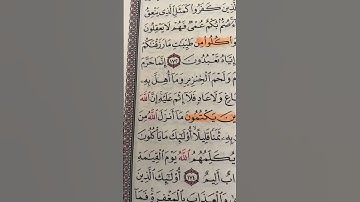 كَفَرُوا۟ كَمَثَلِ ٱلَّذِى يَنْعِقُ
بُكْمٌ عُمْىٌ فَهُمْ لَا يَعْقِلُونَ
كُلُوا۟ مِن طَيِّبَٰتِ مَا رَزَقْنَٰكُمْ
إِيَّاهُ تَعْبُدُونَ ١٧٢ إِنَّمَا حَرَّمَ
وَلَحْمَ ٱلْخِنزِيرِ وَمَآ أُهِلَّ بِهِۦ
وَلَا عَادٍ فَلَآ إِثْمَ عَلَيْهِ إِنَّ ٱللَّهَ
يَكْتُمُونَ مَآ أَنزَلَ ٱللَّهُ مِنَ
بِهِۦ ثَمَنًا قَلِيلًا أُو۟لَٰٓئِكَ مَا يَأْكُلُونَ
يُكَلِّمُهُمُ ٱللَّهُ يَوْمَ ٱلْقِيَٰمَةِ
أَلِيمٌ ١٧٤ أُو۟لَٰٓئِكَ ٱلَّذِينَ
وَٱلْعَذَابَ بِٱلْمَغْفِرَةِ فَمَآ